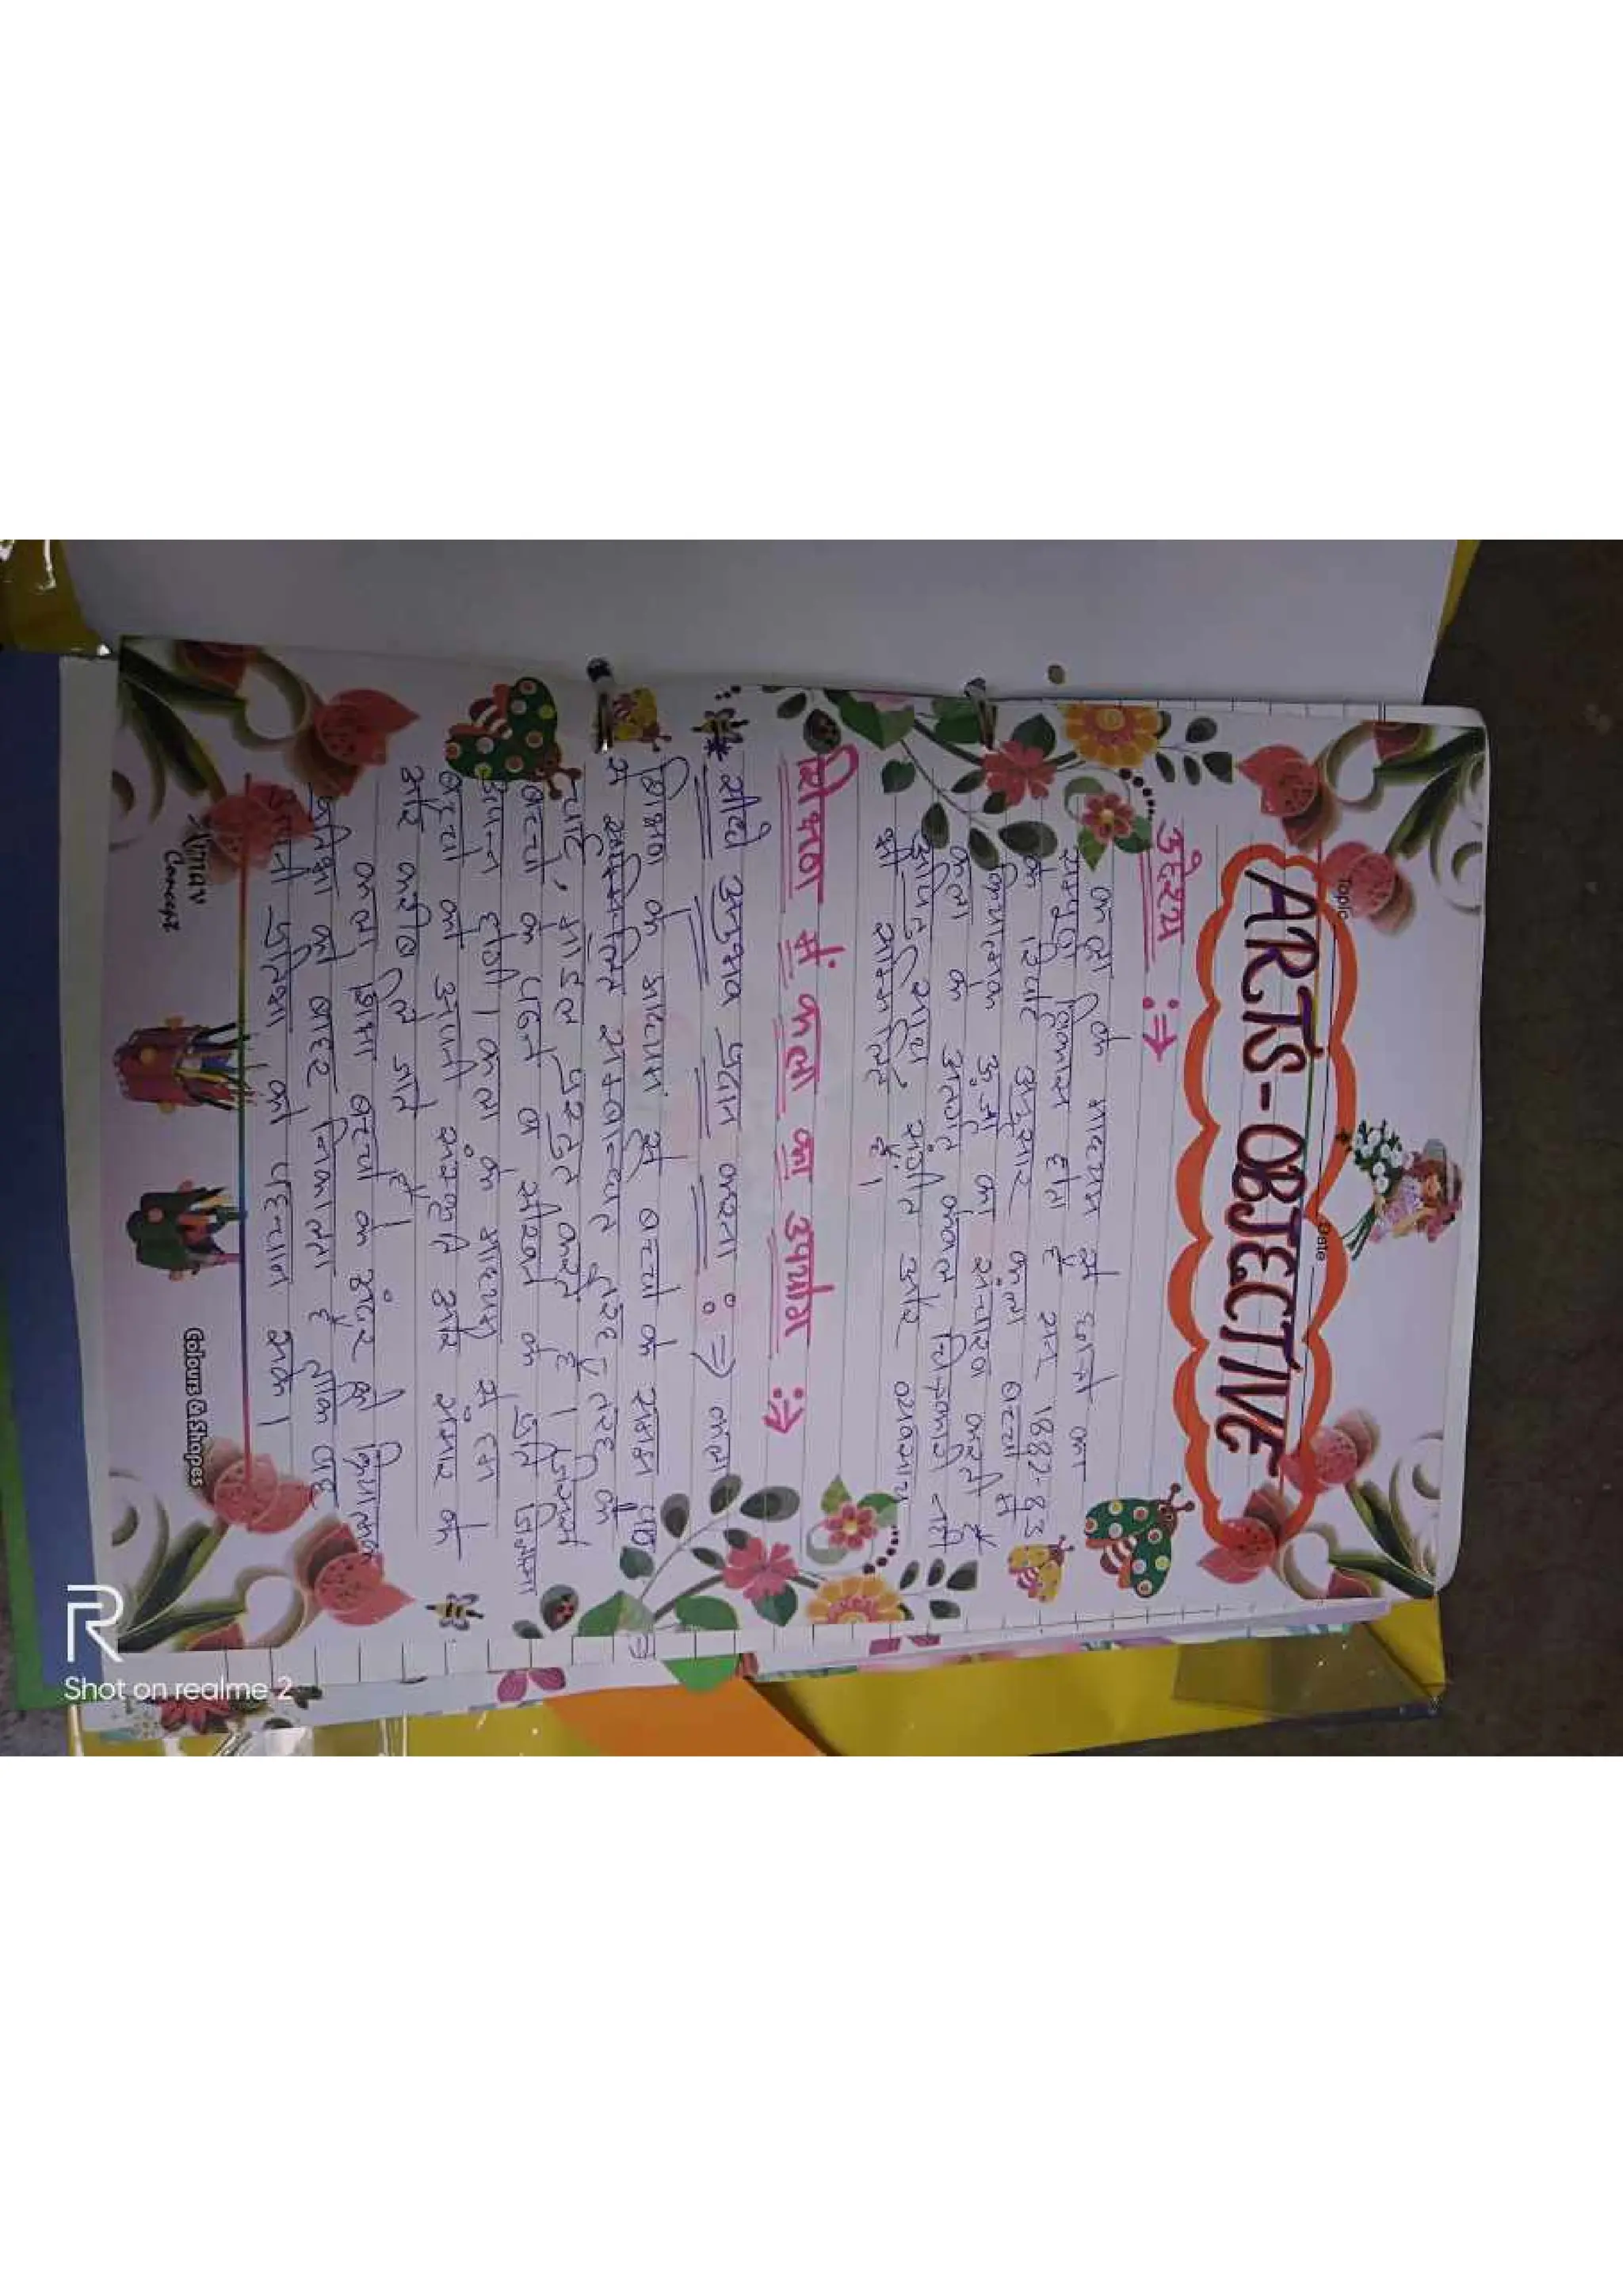 Topic
Date
ARTS-OBJECTIVE
उद्देश्य :⇒
कला के माध्यम से छात्रों का
सम्पूर्ण विकास होता है सन् 1882-83
के रिपोर्ट अनुसार कला बच्चों में
क्रियात्मक का संचारण करती है
कला के अंतर्गत केवल चित्रकारी नहीं
संगीत और व्यवसाय
भी है।
शिक्षण में कला का उपयोग :⇒
* सीधे अनुभव प्रदान करना :⇒ कला
शिक्षण के माध्यम से बच्चों के समक्ष
से तरह तरह के
चार्ट, मॉडल प्रस्तुत करते है। जिससे
बच्चों के पढने व सीखने के प्रति जिज्ञासा
उत्पन्न होगी। कला के माध्यम से हम
बच्चों को अपनी संस्कृति और संसार के
और करीब ले जाते है।
कला शिक्षा बच्चों के अंदर की क्रियात्मक
को बाहर निकालता है ताकि वह
अपनी प्रतिभा को पहचान सके।
Concept
Colours & Shapes
Shot on realme 2